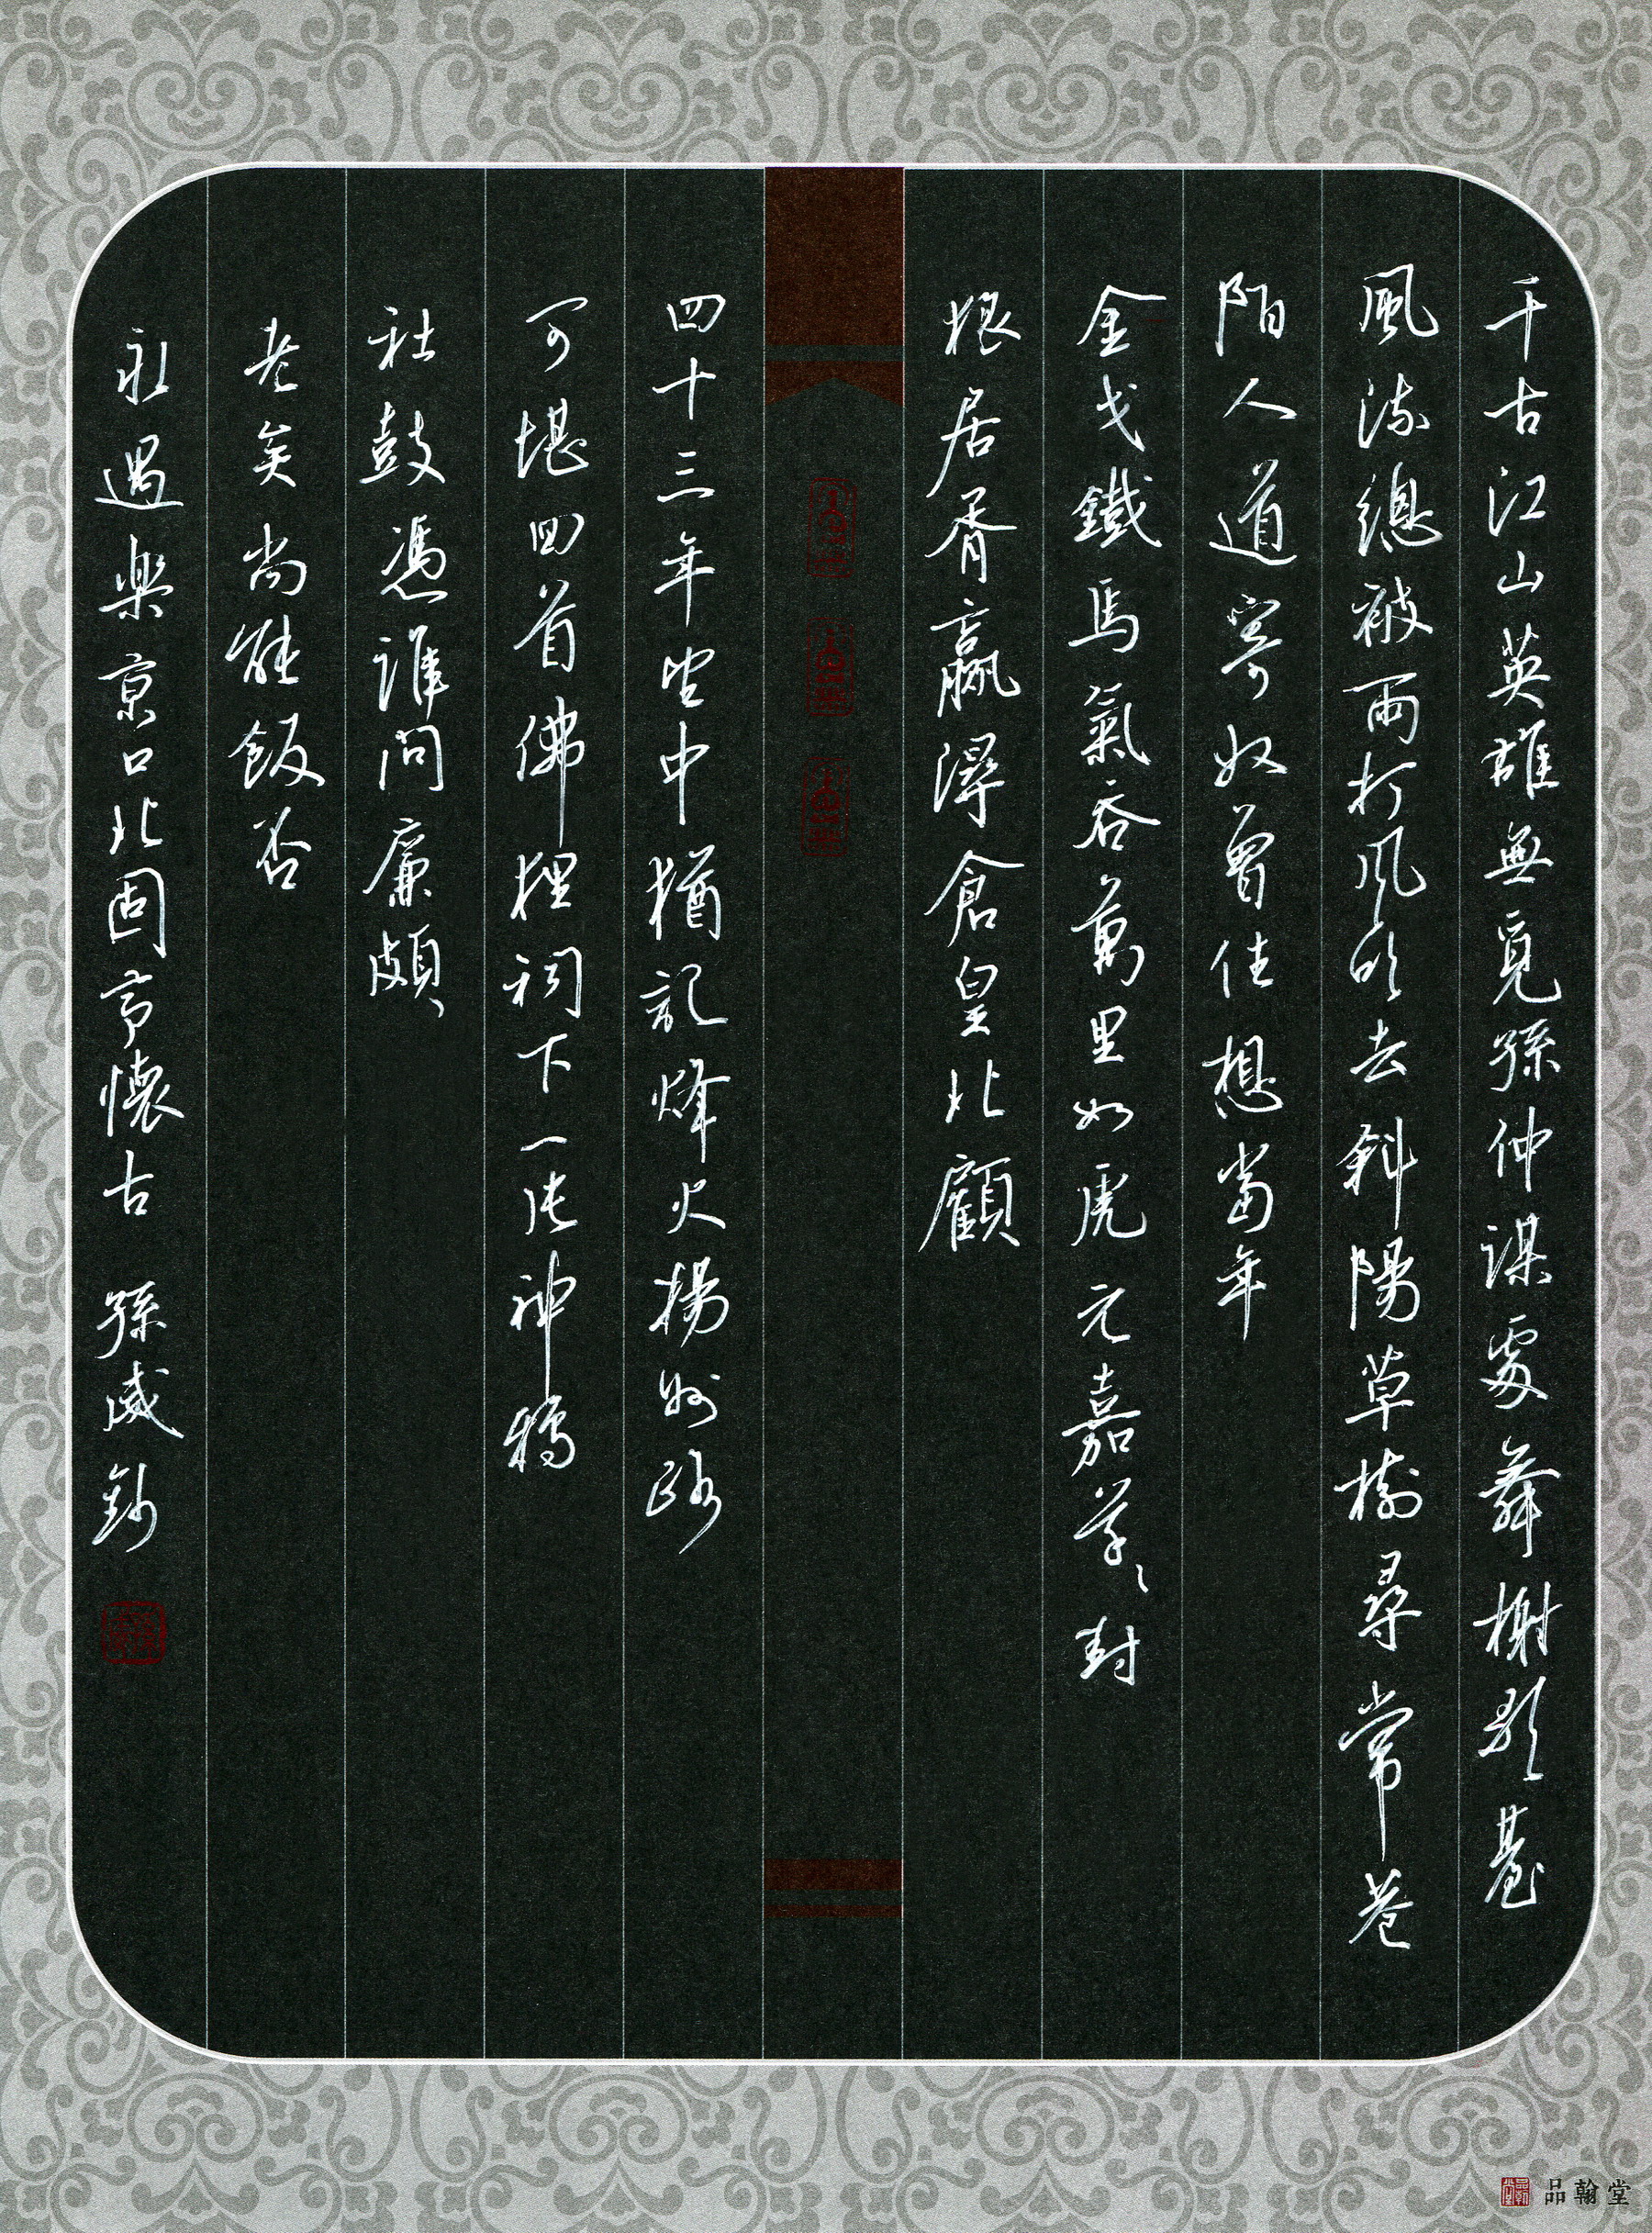 千古江山英雄無覓孫仲謀處舞榭歌臺
風流總被雨打风吹去斜陽草樹尋常巷
陌人道寄奴曾住想當年
金戈鐵馬氣吞萬里如虎元嘉草々封
狼居胥贏得倉皇北顧
四十三年望中猶記烽火揚州路
可堪回首佛狸祠下一片神鴉
社鼓憑誰問廉頗
老矣尚能飯否
永遇楽京口北固亭懷古 孫威鈔
品翰堂